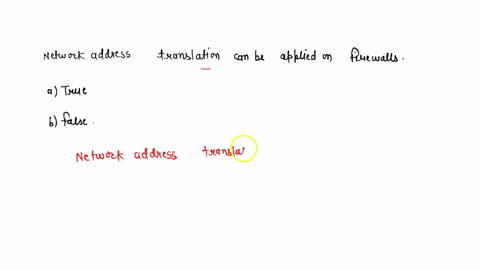 Network address translation can be applied on firewalls.
a) True
b) false.
Network address transla